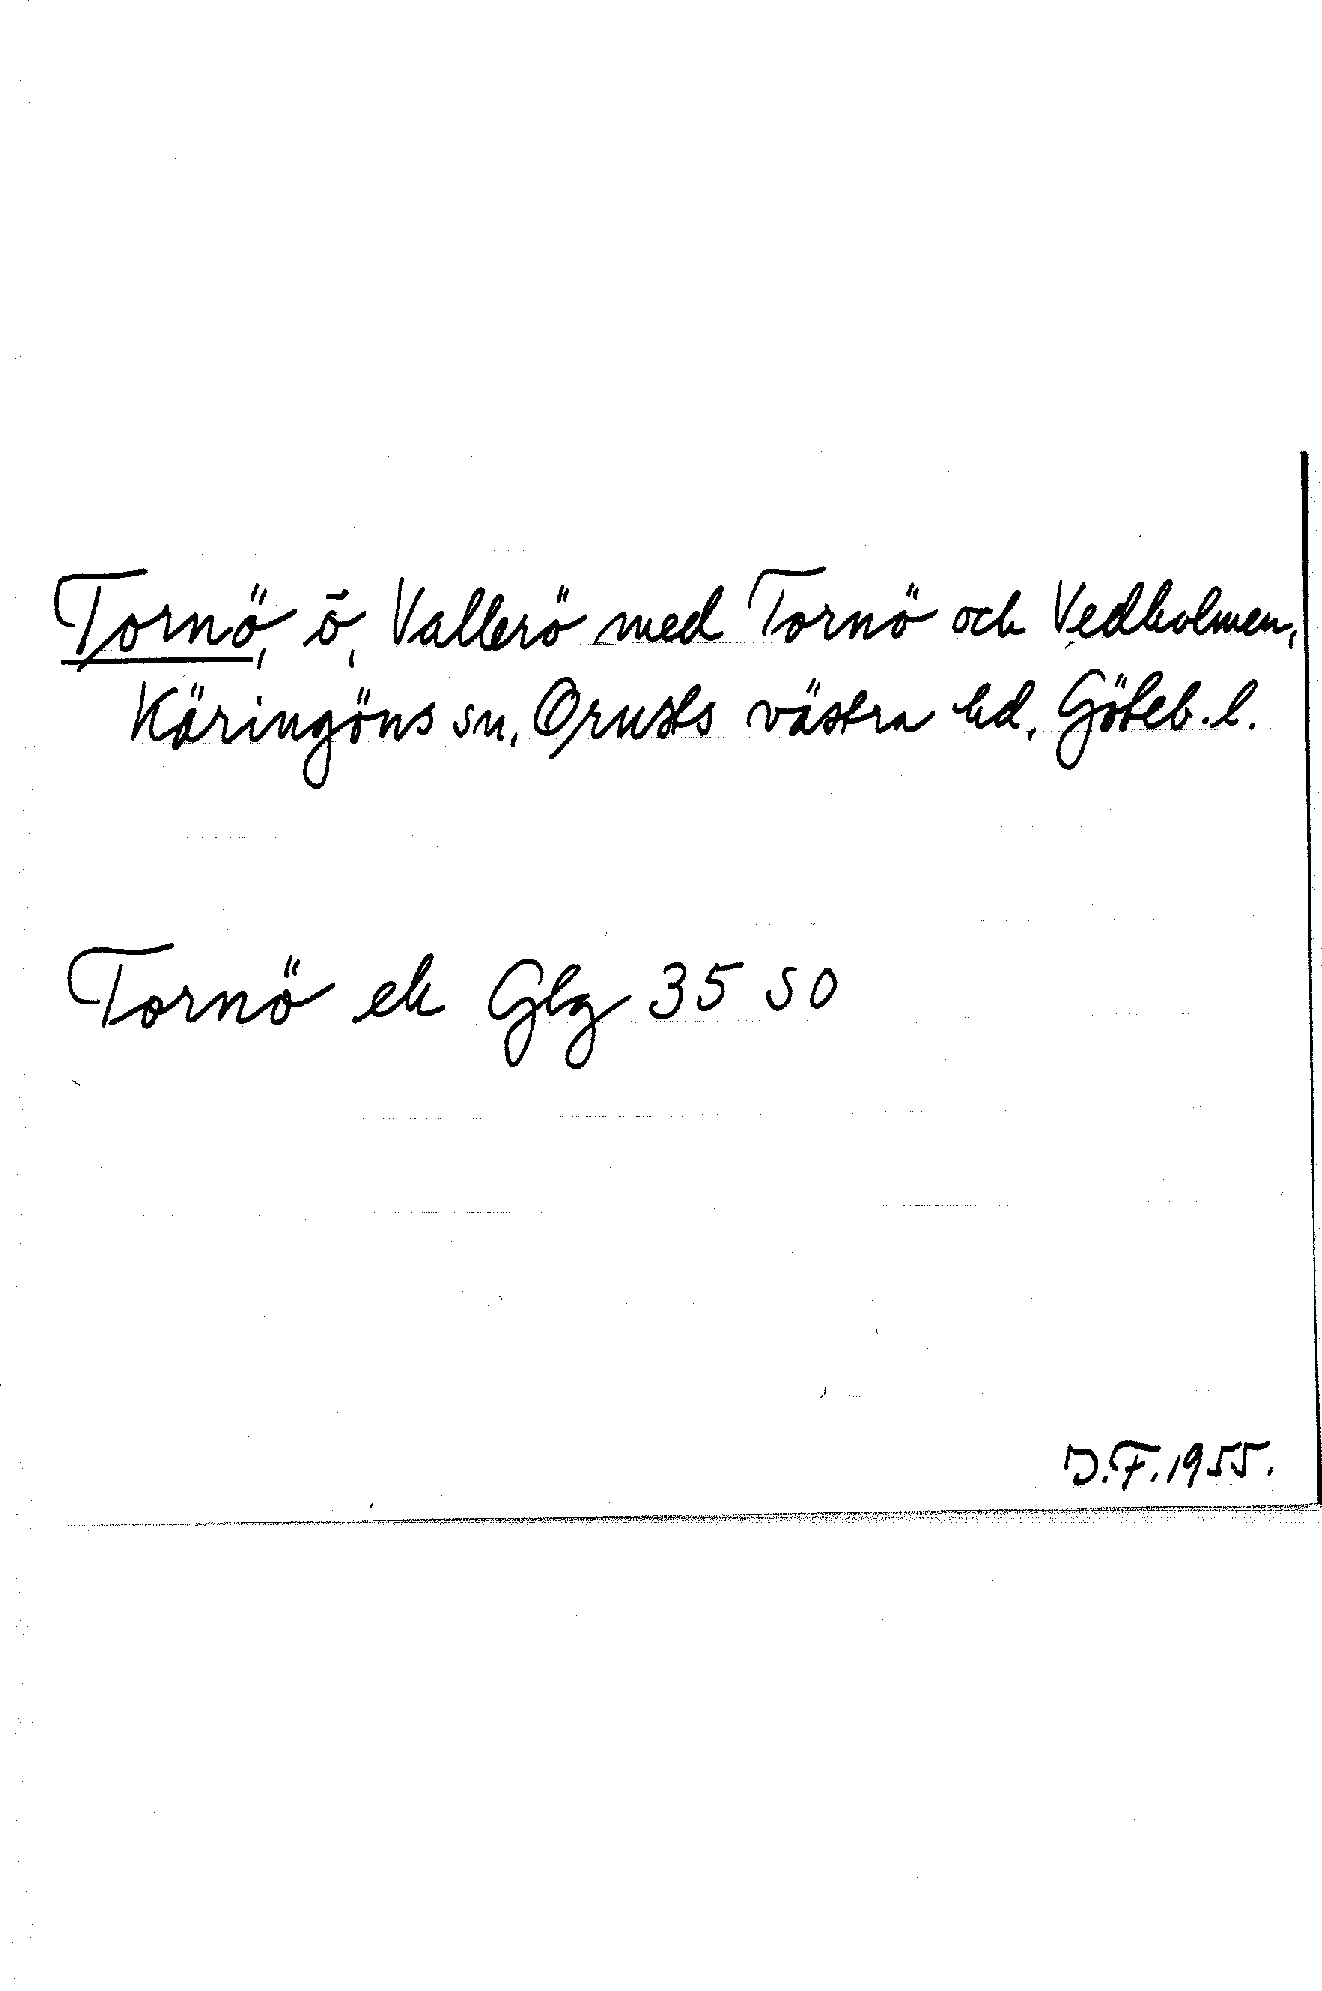 Tornö, ö, Vallerö med Tornö och Vedholmen,
Käringöns sn, Orusts västra hd, Göteb. l.
Tornö ek Glg 35 SO
J.F. 1955.